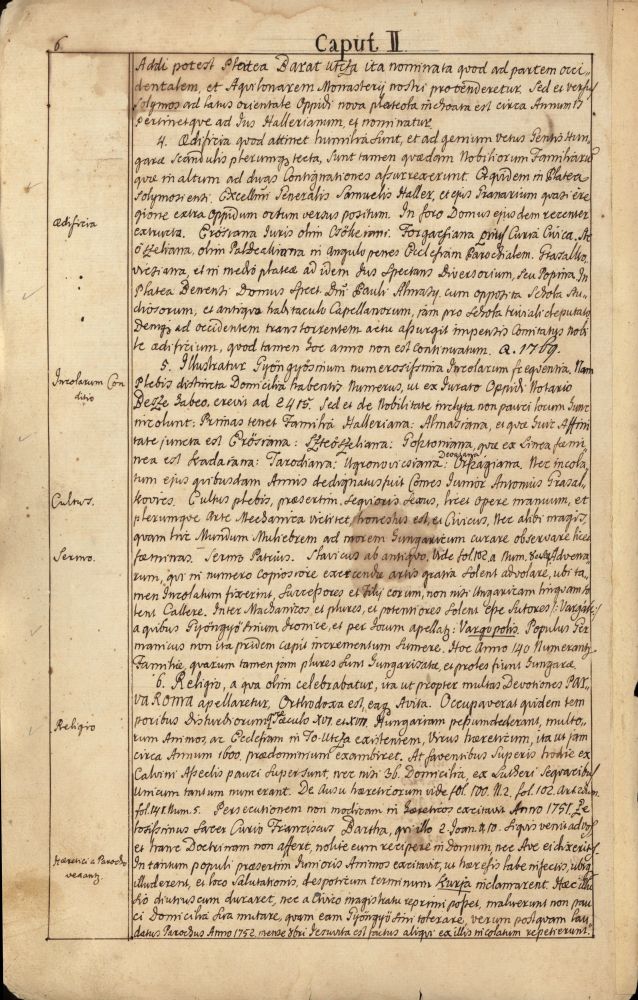 6
Caput II
Addi potest Platea Barat utcza ita nominata quod ad partem occi„
dentalem, et Aquilonarem Monasterij nostri protenderetur. Sed et versus
Solymos ad latus orientale Oppidi nova plateola inchoata est circa Annum 17
pertinetque ad Jus Hallerianum, et nominatur
Ædificia
4. Ædificia quod attinet humilia sunt, et ad genium vetus Gentis Hun„
garæ Scandulis plerumque tecta, sunt tamen quædam Nobiliorum Familiarum
quæ in altum ad duas Contignationes assurrexerunt. Et quidem in Platea
Solymosiensi Excellmi Generalis Samuelis Haller, et ejus Granarium quasi e re„
gione extra Oppidum ortum versus positum. In foro Domus ejusdem recenter
extructa. Orosiana Juris olim Csőkeiani. Forgacsiana prius Curia Civica.
olim Paldeakiana in angulo penes Ecclesiam Parochialem. Grasalko„
vicsiana, et in medio plateæ ad idem Jus Spectans Diversorium, seu Popina. In
Platea Benensi Domus Spect. Dni Pauli Almasy, cum opposita Schola Stu„
diosorum, et antiqua habitaculo Capellanorum, jam pro Schola triviali deputato
Demum ad occidentem trans torrentem actu assurgit impensis Comitatus nobi„
le ædificium, quod tamen hoc anno non est Continuatum. A. 1769.
Incolarum Con
ditio
5. Illustratur Gyöngyösinum numerosissima Incolarum frequentia. Nam
Plebis distincta Domicilia habentis Numerus, ut ex Jurato Oppidi Notario
habeo, crevit ad 2415. Sed et de Nobilitate inclyta non pauci locum hunc
incolunt: Primas tenet Familia Halleriana: Almasiana, et quæ huic Affini„
tate juncta est Orosiana: Gosztoniana, quæ ex Linea fæmi„
nea est Kadariana: Tarodiana: Ugronovicsiana: Orszagiana. Nec incola„
tum ejus quibusdam Annis dedignatus fuit Comes Junior Antonius Grasal„
Cultus.
kovics. Cultus plebis, præsertim Sequioris Sexus, licet opere manuum, et
plerumque Arte Mechanica victitet, honestus est, et Civicus, Nec alibi magis,
quam hic Mundum Muliebrem ad morem Hungaricum curare observare licet
Sermo.
fæminas. Sermo Patrius. Slavicus ab antiquo, Vide fol. 102 a Num. Advena„
rum, qui in numero copiosiore exercendæ artis gratia solent advolare, ubi ta„
men Incolatum fixerint, Successores et Filij eorum, non nisi Ungaricam linquam so„
lent Callere. Inter Mechanicos et plures, et potentiores solent esse Sutores: Vargak:
a quibus Gyöngyösinum Ironice, et per Jocum apellatur Vargopolis. Populus Ger„
manicus non ita pridem cæpit incrementum Sumere. Hoc Anno 140 Numerantur
Familiæ, quarum tamen jam plures sunt Hungarizatæ, et proles fiunt Hungaræ.
Religio
6. Religio, a qua olim celebrabatur, ita ut propter multas Devotiones PAR„
VA ROMA apellaretur, Orthodoxa est, eaque Avita. Occupaverat quidem tem
poribus Disturbiorum Sæculo XVI. et XVII. Hungariam pessumdederant, multo„
rum Animos, ac Ecclesiam in To-Utcza existentem, Virus hæreticum, ita ut jam
circa Annum 1600. prædominium exambiret. At faventibus Superis hodie ex
Calvini Asseclis pauci supersunt, nec nisi 36. Domicilia, ex Lutheri Sequacibus
Unicum tantum numerant. De Ausu hæreticorum vide fol. 100. N. 2. fol. 102.
fol. 141. Num. 5. Persecutionem non modicam in hæreticos excitavit Anno 1751. Ze„
losissimus Sacer Curio Franciscus Bartha, qui illo 2. Joan. v. 10. Siquis venit ad vos
et hanc Doctrinam non affert, nolite eum recipere in domum, nec Ave ei dixeritis
Hæretici a Parocho
vexantur.
In tantum populi præsertim Junioris Animos excitavit, ut hæresis labe infectis, ubique
illuderent, et loco Salutationis, despoticum terminum Kurja inclamarent. Hæc illu„
sio diutius cum duraret, nec a Civico magistratu reprimi posset, maluerunt non pau„
ci Domicilia sua mutare, quam eam Gyöngyösini tolerare, verum postquam Lau„
datus Parochus Anno 1752. mense Jesuvita est factus aliqui ex illis incolatum repetierunt.